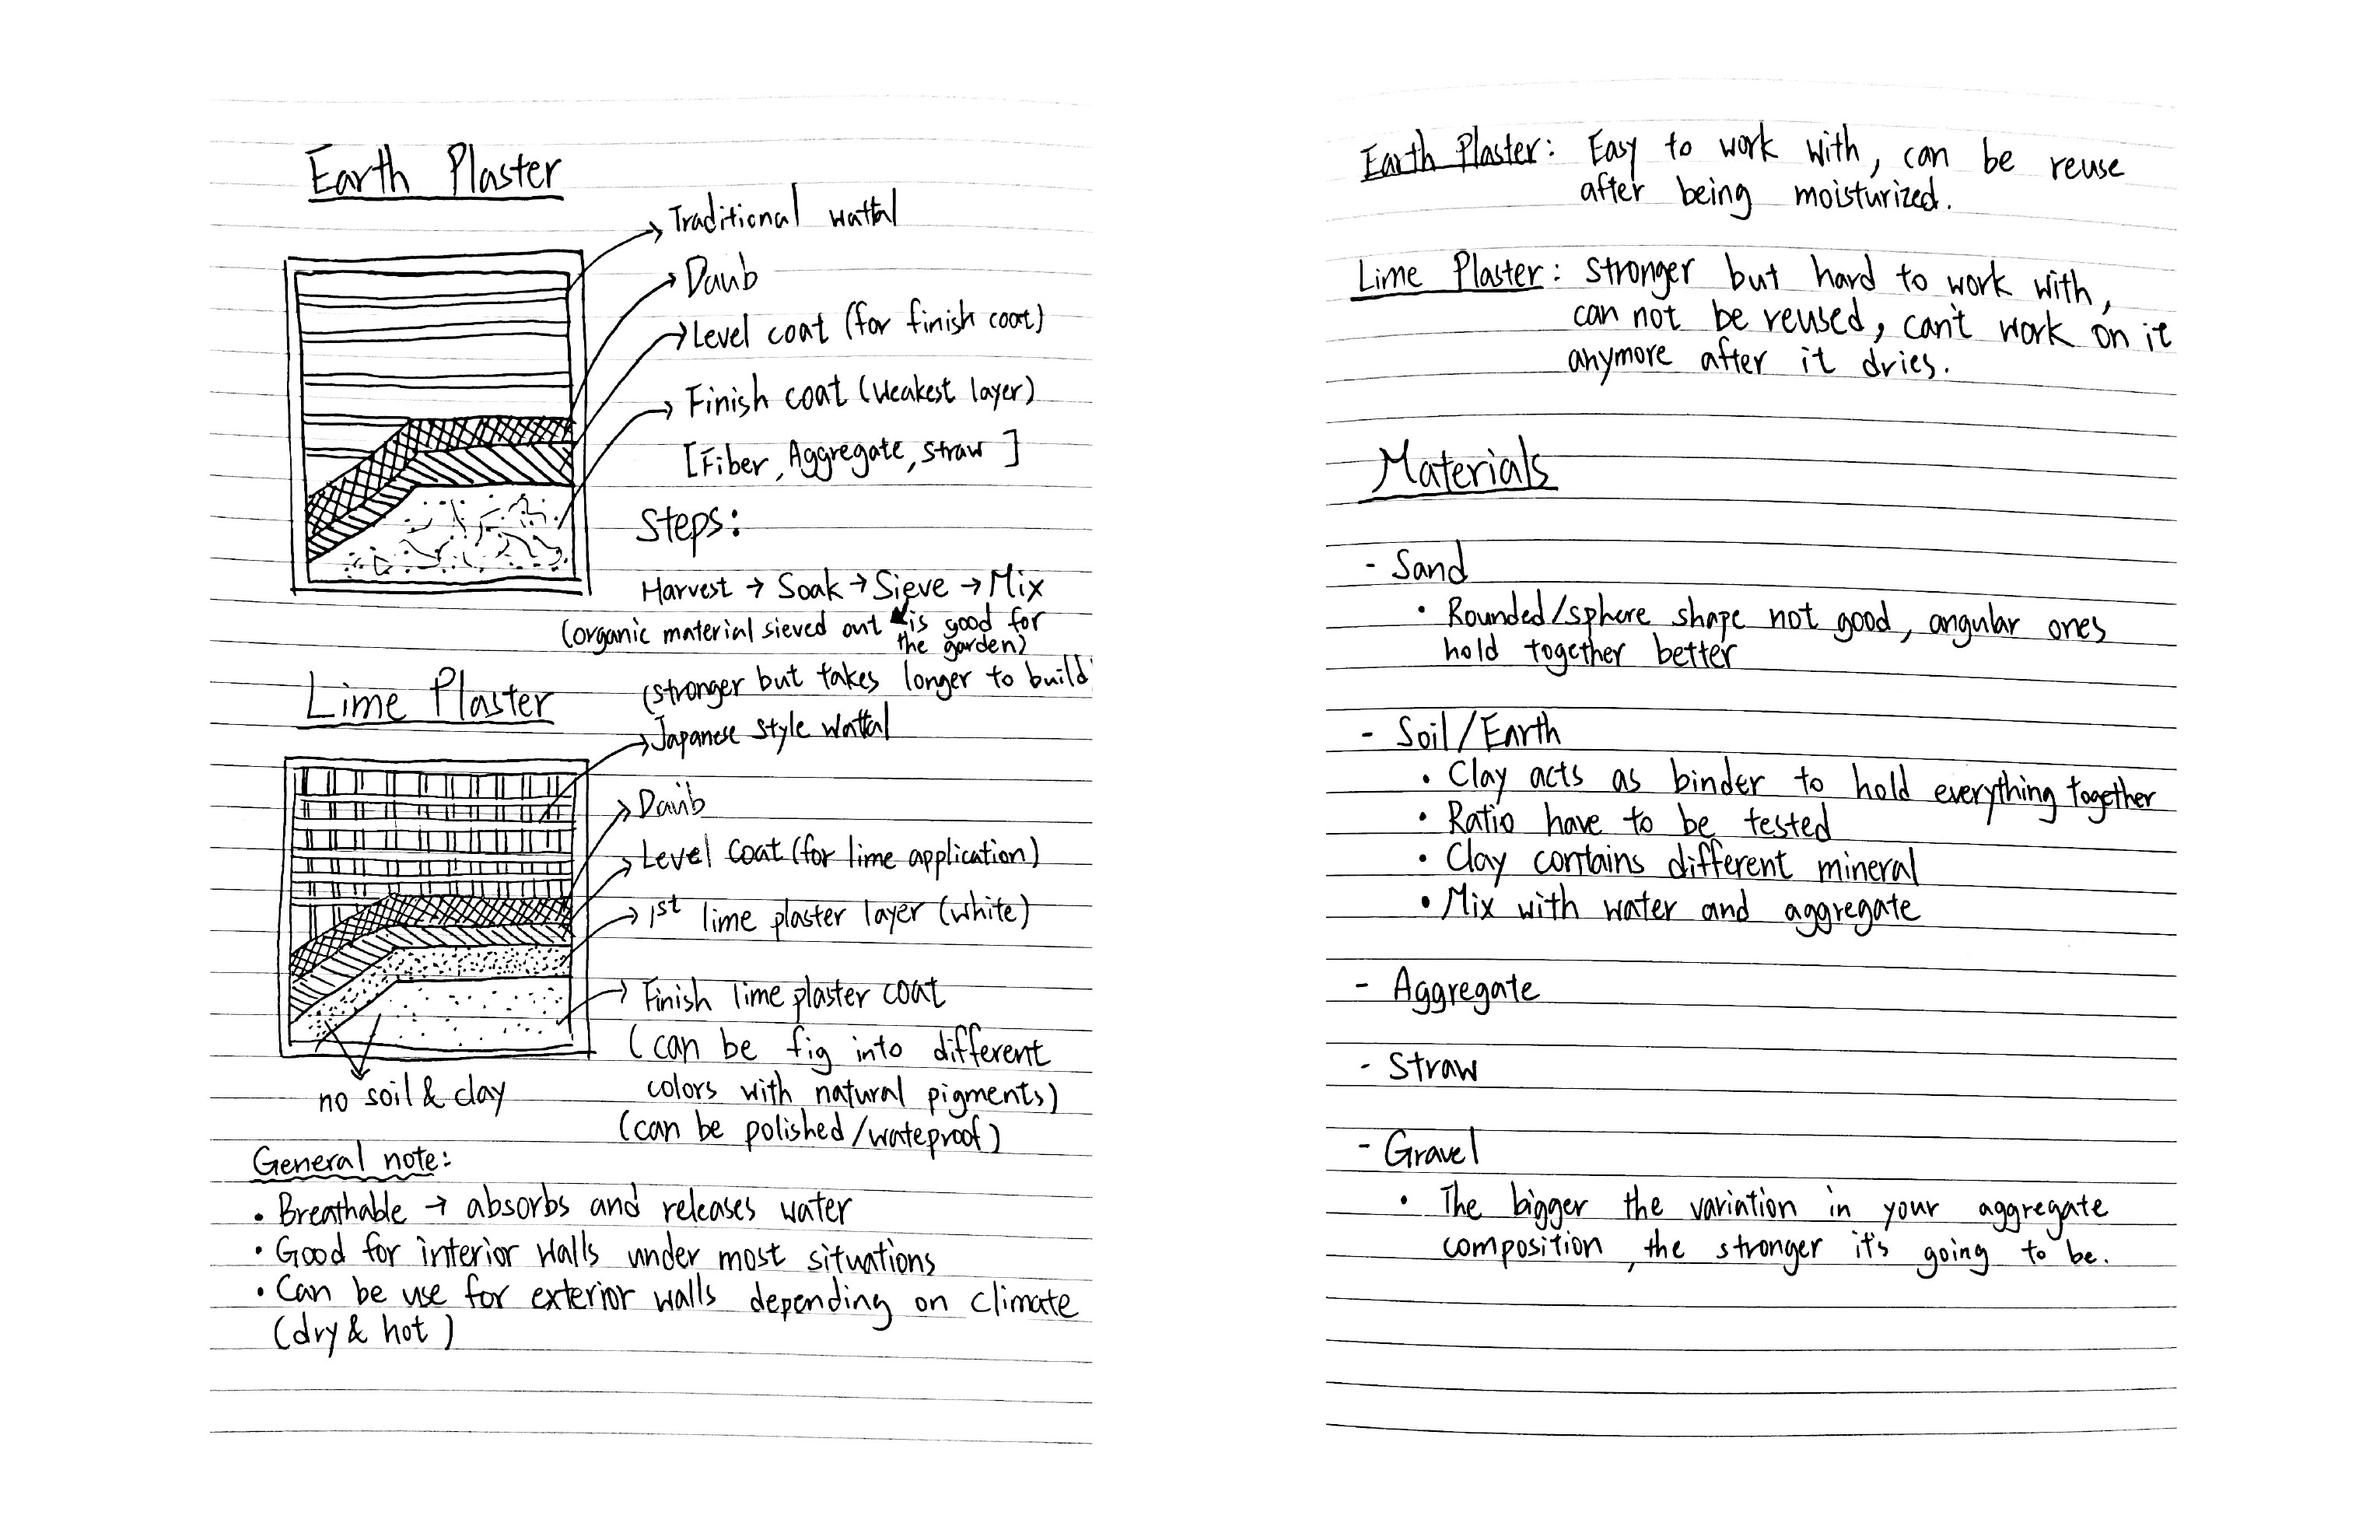 Earth Plaster
Traditional wattal
Daub
Level coat (for finish coat)
Finish coat (Weakest layer)
[Fiber, Aggregate, straw]
Steps:
Harvest → Soak → Sieve → Mix
(organic material sieved out is good for
the garden)
Lime Plaster
(stronger but takes longer to build
Japanese style wattal
Daub
Level coat (for lime application)
1st lime plaster layer (white)
Finish lime plaster coat
(can be fig into different
colors with natural pigments)
(can be polished/wateproof)
no soil & clay
General note:
• Breathable → absorbs and releases water
• Good for interior walls under most situations
• Can be use for exterior walls depending on climate
(dry & hot)
Earth Plaster: Easy to work with, can be reuse
after being moisturized.
Lime Plaster: stronger but hard to work with,
can not be reused, can't work on it
anymore after it dries.
Materials
- Sand
• Rounded/sphere shape not good, angular ones
hold together better
- Soil/Earth
• Clay acts as binder to hold everything together
• Ratio have to be tested
• Clay contains different mineral
• Mix with water and aggregate
- Aggregate
- Straw
- Gravel
• The bigger the variation in your aggregate
composition, the stronger it's going to be.